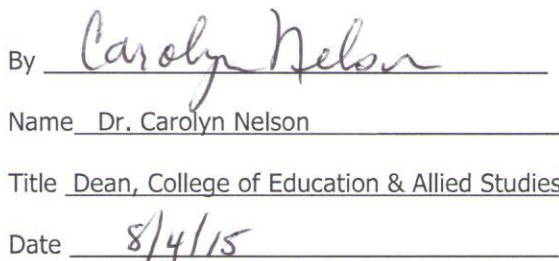 By Carolyn Nelson
Name Dr. Carolyn Nelson
Title Dean, College of Education & Allied Studies
Date 8/4/15